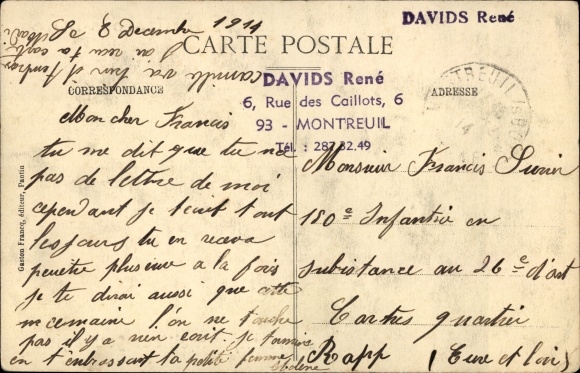 Le 8 Decembre 1914
DAVIDS René
CARTE POSTALE
DAVIDS René
6, Rue des Caillots, 6
93 - MONTREUIL
Tél. : 287.32.49
CORRESPONDANCE
ADRESSE
MONTREUIL
Mon cher Francis
tu me dit que tu na
pas de lettre de moi
cependant je tecrit tout
les jours tu en recera
peuetre plusieur a la fois
je te dirai aussi que cette
mcemaine l'on ne touche
pas il y a rien ecrit je
en t'embrassant ta petite femme
Monsieur Francis
150e Infantrie en
subistance au 26e d'art
Cartres quartier
Rapp (Eure et loir)
Gaston Francq, éditeur, Pantin